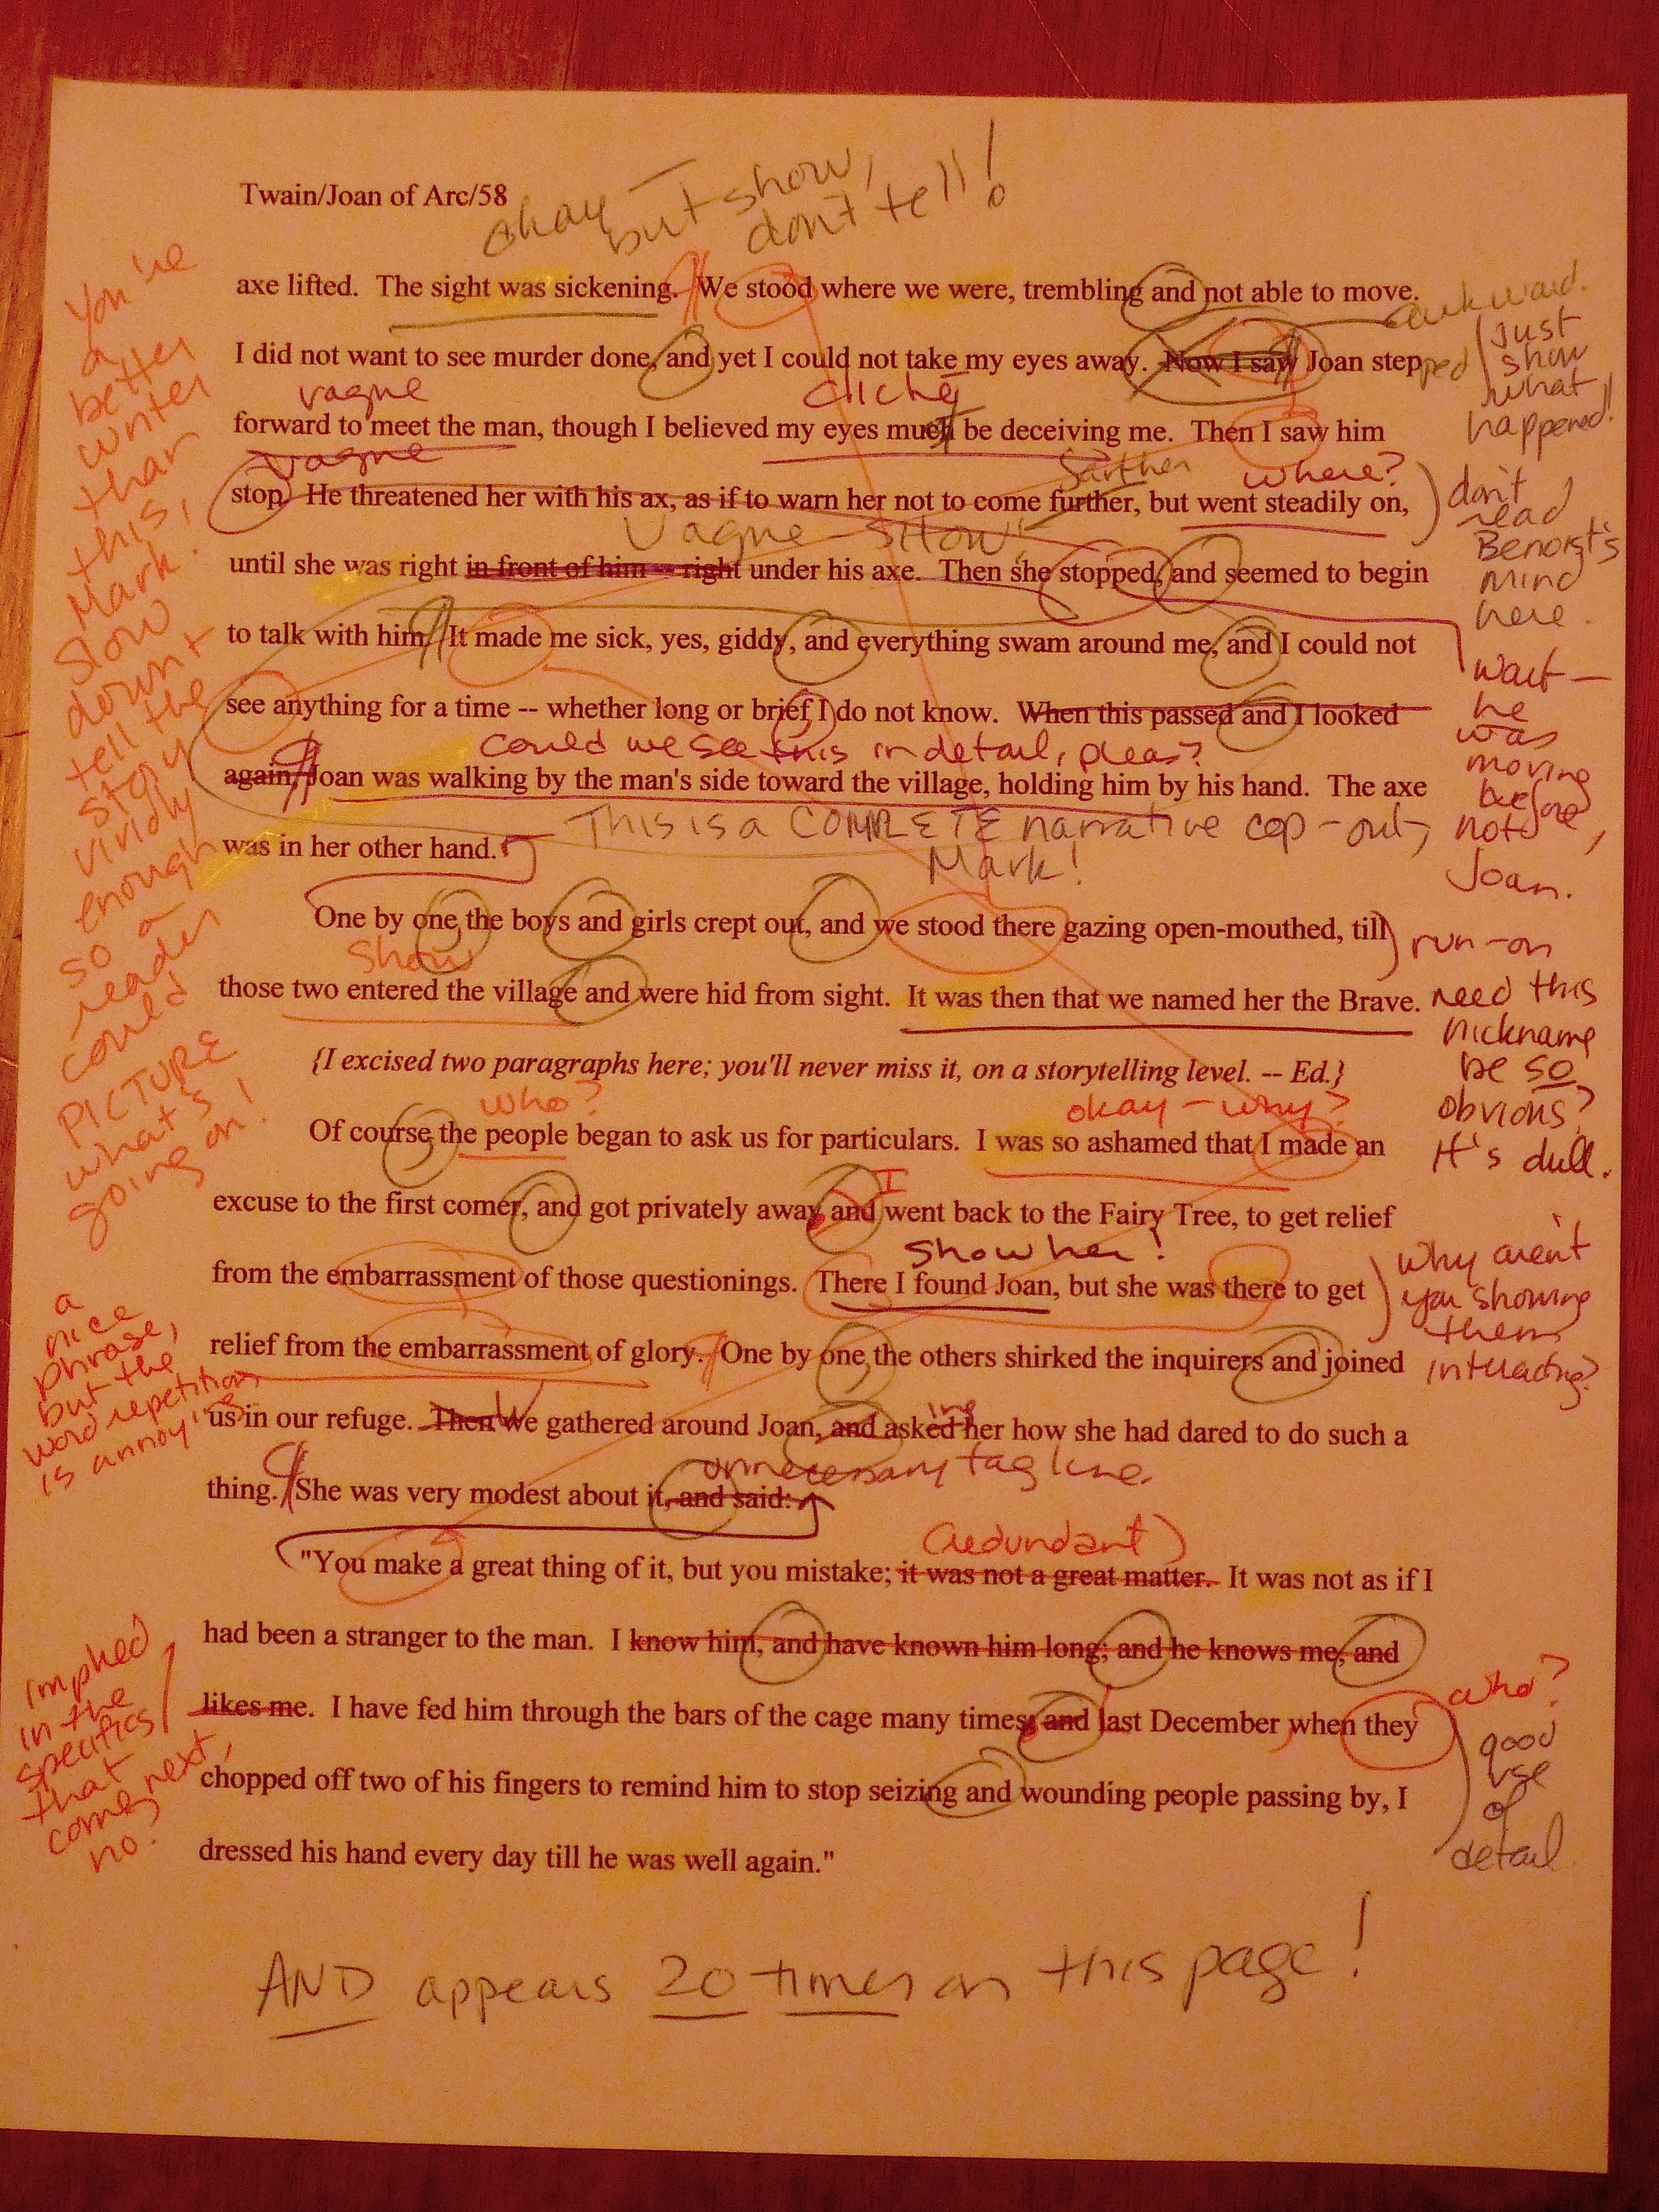 Twain/Joan of Arc/58
okay — but show, don't tell!
axe lifted. The sight was sickening. We stood where we were, trembling and not able to move.
awkward.
I did not want to see murder done, and yet I could not take my eyes away. Now I saw Joan stepped
Just show what happened!
vague
cliché
forward to meet the man, though I believed my eyes must be deceiving me. Then I saw him
vague
farther
where?
stop. He threatened her with his ax, as if to warn her not to come further, but went steadily on,
don't read Benoist's mind here.
Vague – SHOW!
until she was right in front of him -- right under his axe. Then she stopped, and seemed to begin
to talk with him. It made me sick, yes, giddy, and everything swam around me, and I could not
wait — he was moving before, not Joan.
see anything for a time -- whether long or brief, I do not know. When this passed and I looked
could we see this in detail, pleas?
again, Joan was walking by the man's side toward the village, holding him by his hand. The axe
was in her other hand.
This is a COMPLETE narrative cop-out, Mark!
You're
a
better
writer
than
this,
Mark.
Slow
down +
tell the
story
vividly
enough
so a
reader
could
PICTURE
what's
going on!
One by one, the boys and girls crept out, and we stood there gazing open-mouthed, till
run-on
show
those two entered the village and were hid from sight. It was then that we named her the Brave.
need this nickname be so obvious? It's dull.
{I excised two paragraphs here; you'll never miss it, on a storytelling level. -- Ed.}
who?
okay – why?
Of course, the people began to ask us for particulars. I was so ashamed that I made an
I
excuse to the first comer, and got privately away and went back to the Fairy Tree, to get relief
show her!
from the embarrassment of those questionings. There I found Joan, but she was there to get
why aren't you showing them interacting?
relief from the embarrassment of glory. One by one, the others shirked the inquirers and joined
a nice phrase, but the word repetition is annoying.
us in our refuge. Then We gathered around Joan, and asked ing her how she had dared to do such a
unnecessary tag line.
thing. She was very modest about it, and said:
(redundant)
"You make a great thing of it, but you mistake; it was not a great matter. It was not as if I
had been a stranger to the man. I know him, and have known him long; and he knows me, and
implied in the specifics that come next, no?
likes me. I have fed him through the bars of the cage many times; and last December when they
who?
good use of detail
chopped off two of his fingers to remind him to stop seizing and wounding people passing by, I
dressed his hand every day till he was well again."
AND appears 20 times on this page!